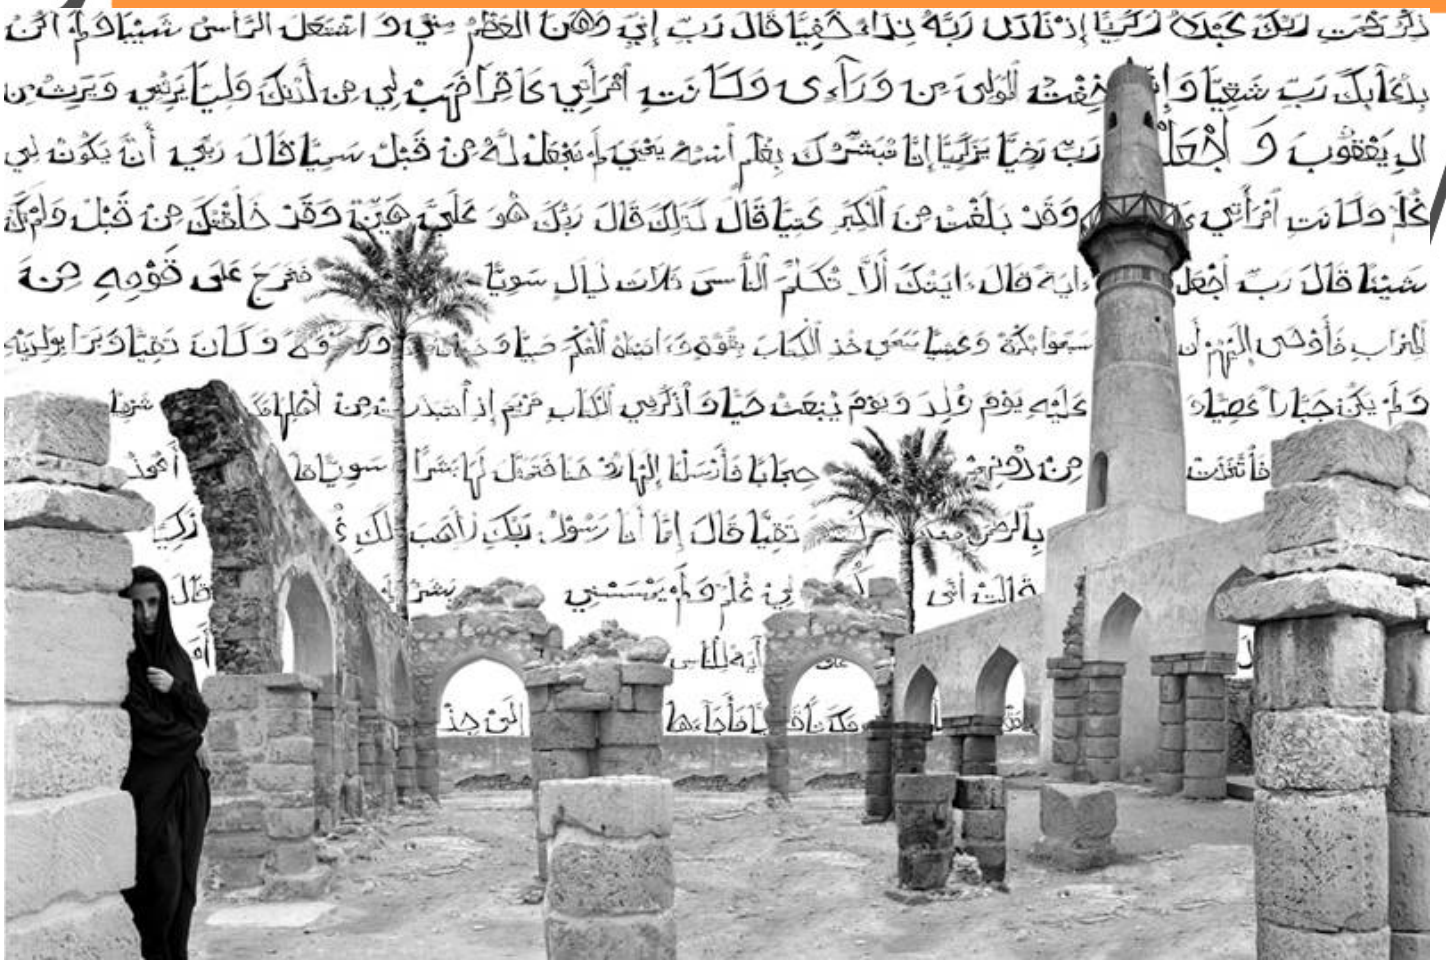 ذكر رحمت ربك عبده زكريا إذ نادى ربه نداء خفيا قال رب إني وهن العظم مني و اشتعل الرأس شيبا و لم أكن
بدعآئك رب شقيا و خفت المولي من ورآءى وكانت امرأتي عاقرا فهب لي من لدنك وليا يرثني ويرث من
ال يعقوب و اجعل رب رضيا يزكريا إنا نبشرك بغلم اسمه يحيى لم نجعل له من قبل سميا قال ربي أنى يكون لي
غلم وكانت امرأتي وقد بلغت من الكبر عتيا قال كذلك قال ربك هو علي هين وقد خلقتك من قبل ولم تك
شيئا قال رب اجعل ءاية قال ءايتك ألا تكلم الناس ثلاث ليال سويا فخرج على قومه من
المحراب فأوحى إليهم أن سبحوا بكرة وعشيا ييحيى خذ الكتاب بقوة وءاتيناه الحكم صبيا و وكان تقيا وبرا بولديه
ولم يكن جبارا عصيا و عليه يوم ولد ويوم يبعث حيا واذكر في الكتاب مريم إذ انتبذت من أهلها شرقيا
فاتخذت من دونهم حجابا فأرسلنا إليها روحنا فتمثل لها بشرا سويا أعوذ
بالرحمن تقيا قال إنما أنا رسول ربك لأهب لك زكيا
قالت أنى لي غلم و لم يمسسني بشر قال
آية للناس
فأجاءها إلى جذ